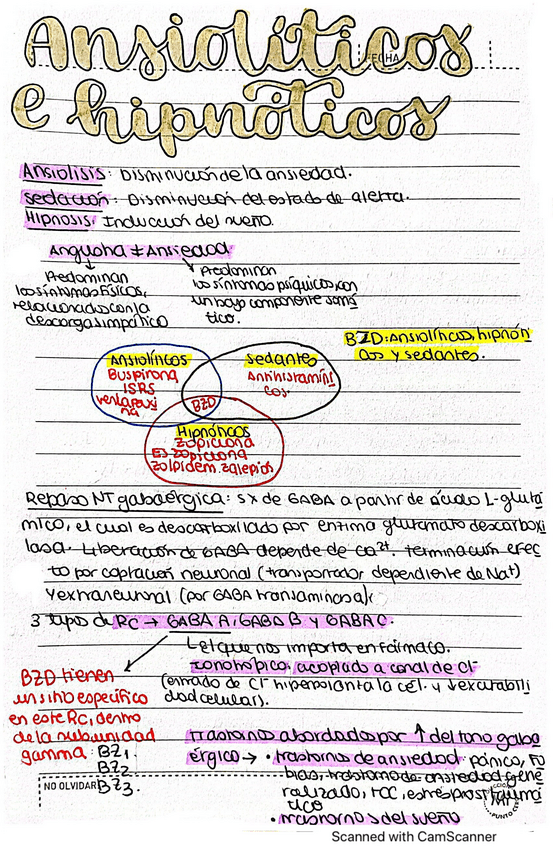 Ansiolíticos
FECHA
e hipnóticos
Ansiolisis: Disminución de la ansiedad.
sedación: Disminución del estado de alerta.
Hipnosis: Inducción del sueño.
Angustia ≠ Ansiedad
Predominan
los síntomas físicos,
relacionados con la
descarga simpático
Predominan
los síntomas psíquicos con
un bajo componente somá
tico.
BZD: ansiolíticos, hipnón
cos y sedantes.
Ansiolíticos
Buspirona
ISRS
venlafaxi
na
sedantes
Antihistamíni
cos
BZD
Hipnóticos
zopiclona
Eszopiclona
zolpidem. zaleplon
Repaso NT gabaérgica: sx de GABA a partir de ácido L-glutá
mico, el cual es descarboxilado por enzima glutamato descarboxi
lasa. Liberación de GABA depende de Ca²⁺. terminación efec
to por captación neuronal (transportador dependiente de Na⁺)
y extraneuronal (por GABA transaminosa).
3 tipos de RC → GABA A, GABA B y GABA C.
L el que nos importa en fármaco.
ionotrópico, acoplado a canal de Cl⁻
(entrado de Cl⁻ hiperpolariza la cél. y ↓ excitabili
dad celular).
BZD tienen
un sitio específico
en este RC, dentro
de la subunidad
gamma: BZ1
BZ2
BZ3.
trastornos abordados por ↑ del tono gaba
érgico → • trastorno de ansiedad: pánico, fo
bias, trastorno de ansiedad gene
ralizado, TOC, estrés post traumá
tico
• trastornos del sueño
NO OLVIDAR
PUNTO
Scanned with CamScanner